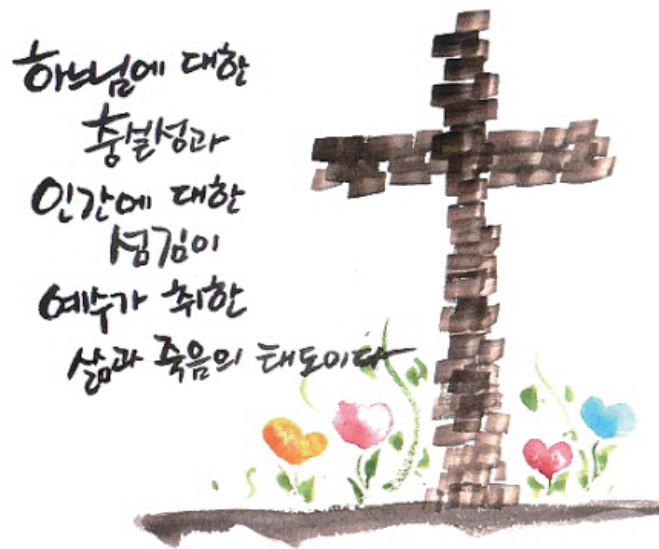 하느님에 대한
충실성과
인간에 대한
섬김이
예수가 취한
삶과 죽음의 태도이다